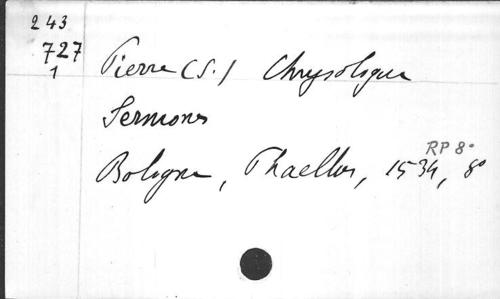 243
727
1
Pierre (S.) Chrysologue
Sermones
Bologne, Phaellus, 1534, 8°
RP 8°